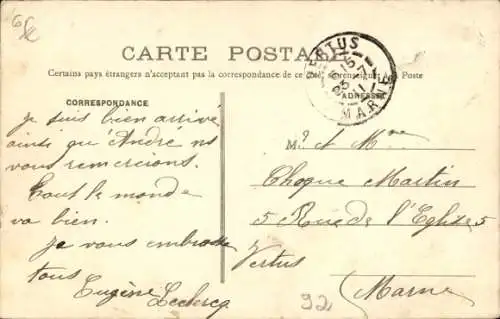 6
CARTE POSTALE
Certains pays étrangers n'acceptant pas la correspondance de ce côté, se renseigner à la Poste
VERTUS
MARNE
CORRESPONDANCE
ADRESSE
je suis bien arrivé
ainsi qu'André ns
vous remercions.
Tout le monde
va bien.
je vous embrasse
tous
Eugène Leclercq
M. et Mme
Choque Martin
5 Rue de l'Eglise 5
Vertus
Marne
92